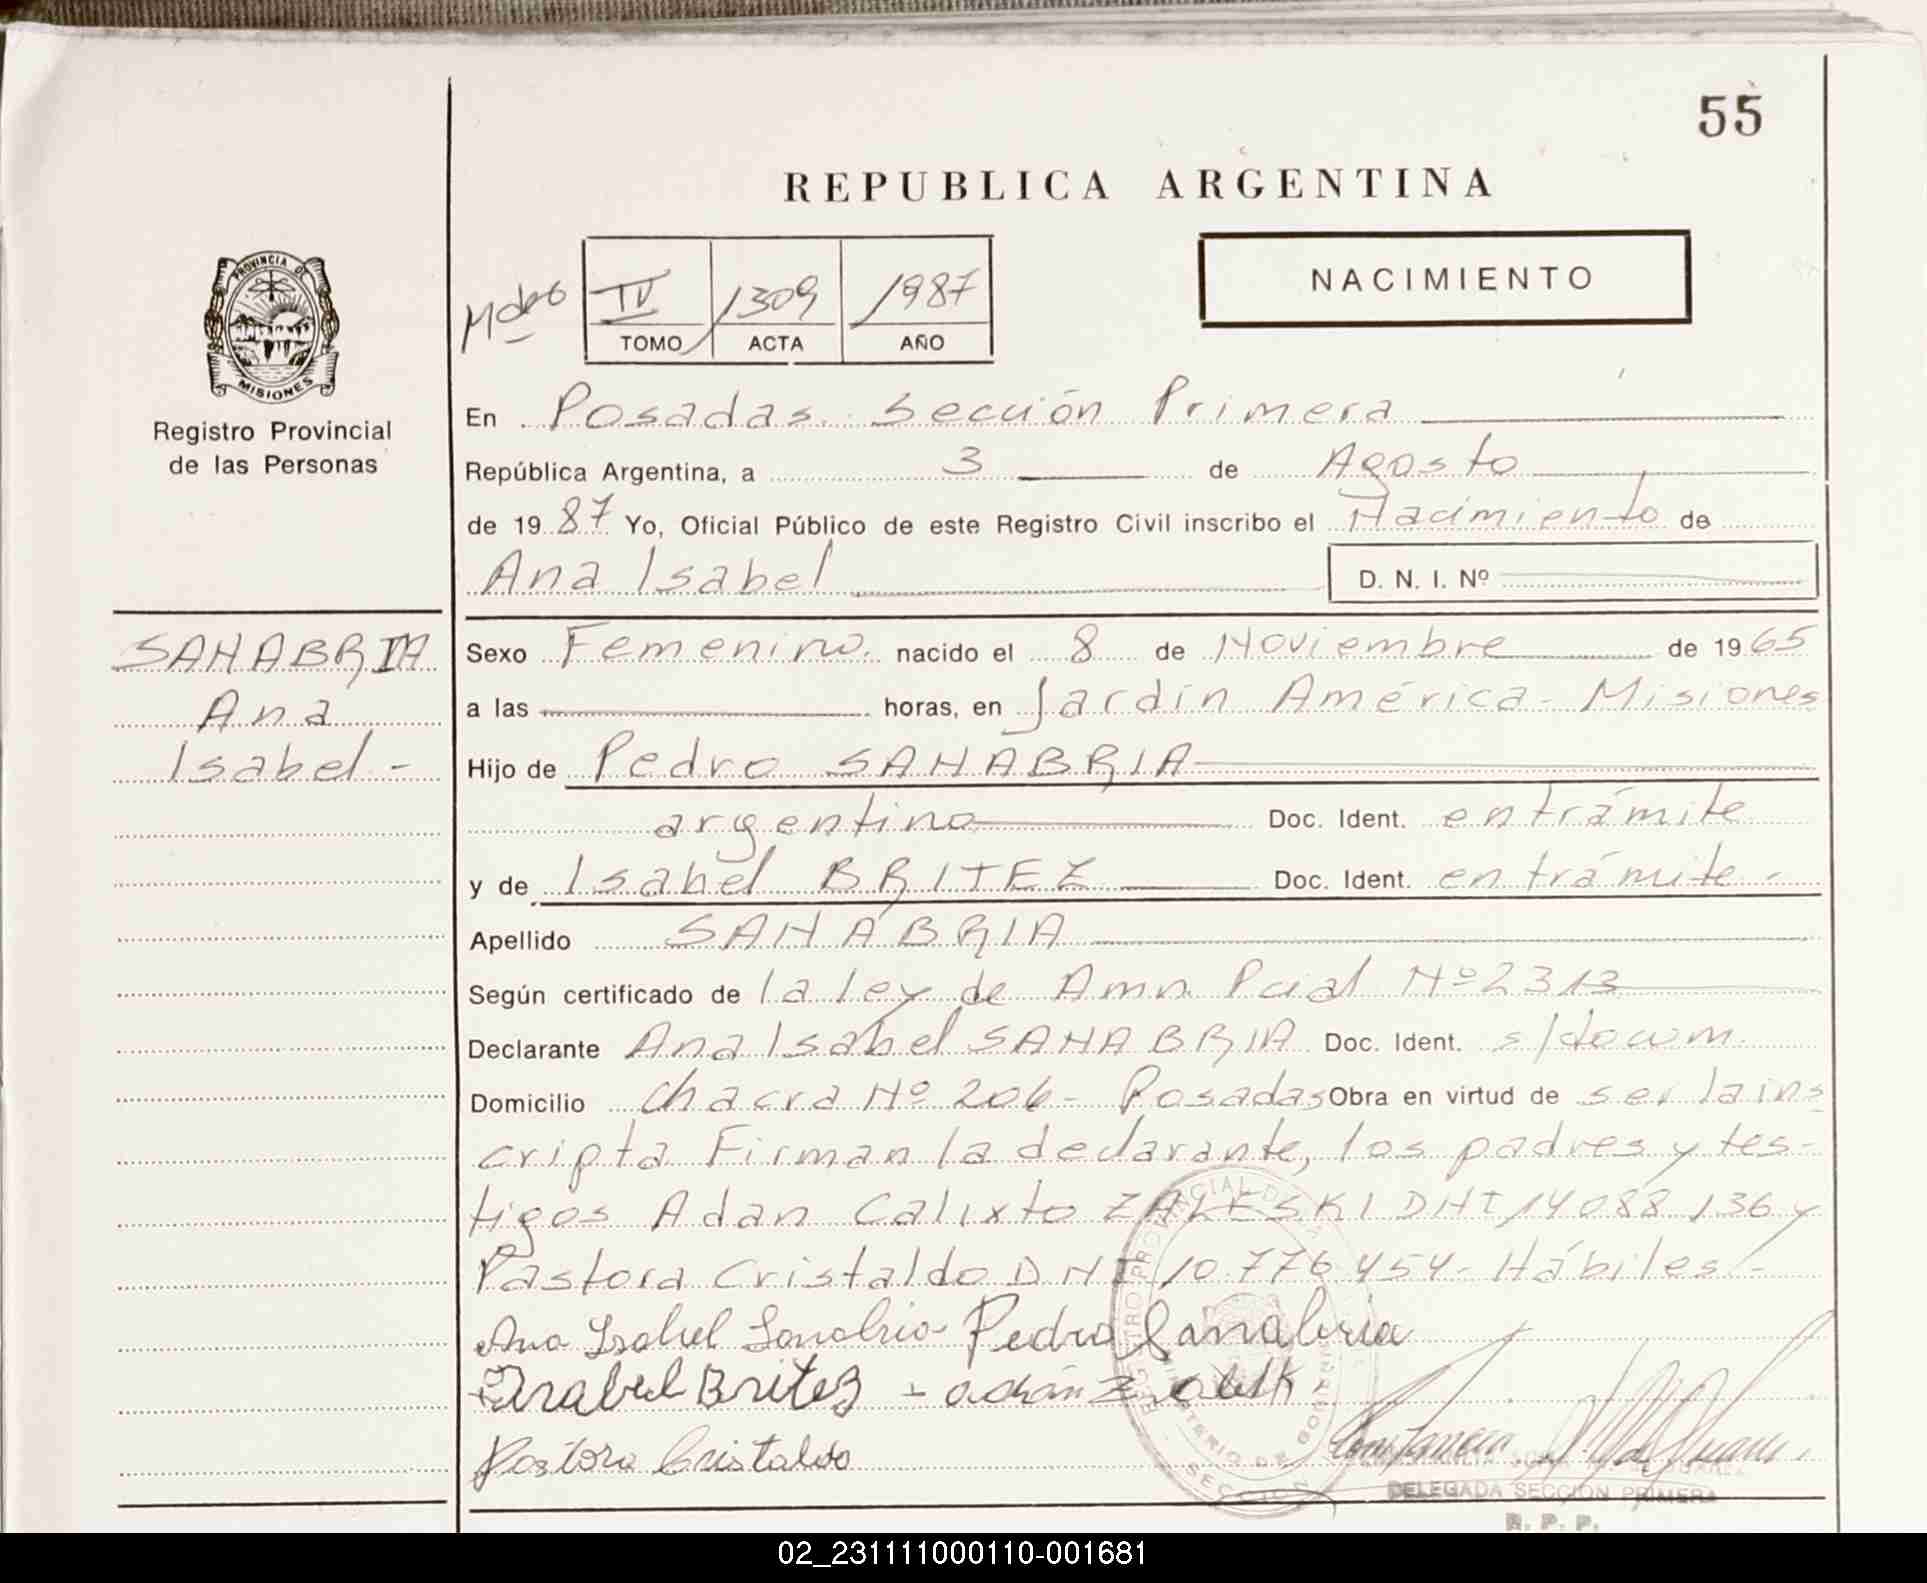 55
REPUBLICA ARGENTINA
PROVINCIA DE
MISIONES
Registro Provincial
de las Personas
IV 1309 1987
TOMO ACTA AÑO
NACIMIENTO
En Posadas Sección Primera
República Argentina, a 3 de Agosto
de 1987 Yo, Oficial Público de este Registro Civil inscribo el Nacimiento de
Ana Isabel D. N. I. Nº
SANABRIA
Ana
Isabel -
Sexo Femenino nacido el 8 de Noviembre de 1965
a las horas, en Jardín América - Misiones
Hijo de Pedro SANABRIA
argentino Doc. Ident. en trámite
y de Isabel BRITEZ Doc. Ident. en trámite -
Apellido SANABRIA
Según certificado de la ley de Amn. Pcial Nº 2313
Declarante Ana Isabel SANABRIA Doc. Ident. s/docum.
Domicilio Chacra Nº 206 - Posadas Obra en virtud de ser la ins
cripta Firman la declarante, los padres y tes-
tigos Adan Calixto ZALESKI DNI 14 088 136 y
Pastora Cristaldo DNI 10.776 454 - Hábiles -
Ana Isabel Sanabria Pedro Sanabria
Isabel Britez - adán
Pastora Cristaldo
DELEGADA SECCION PRIMERA
R. P. P.
02_231111000110-001681